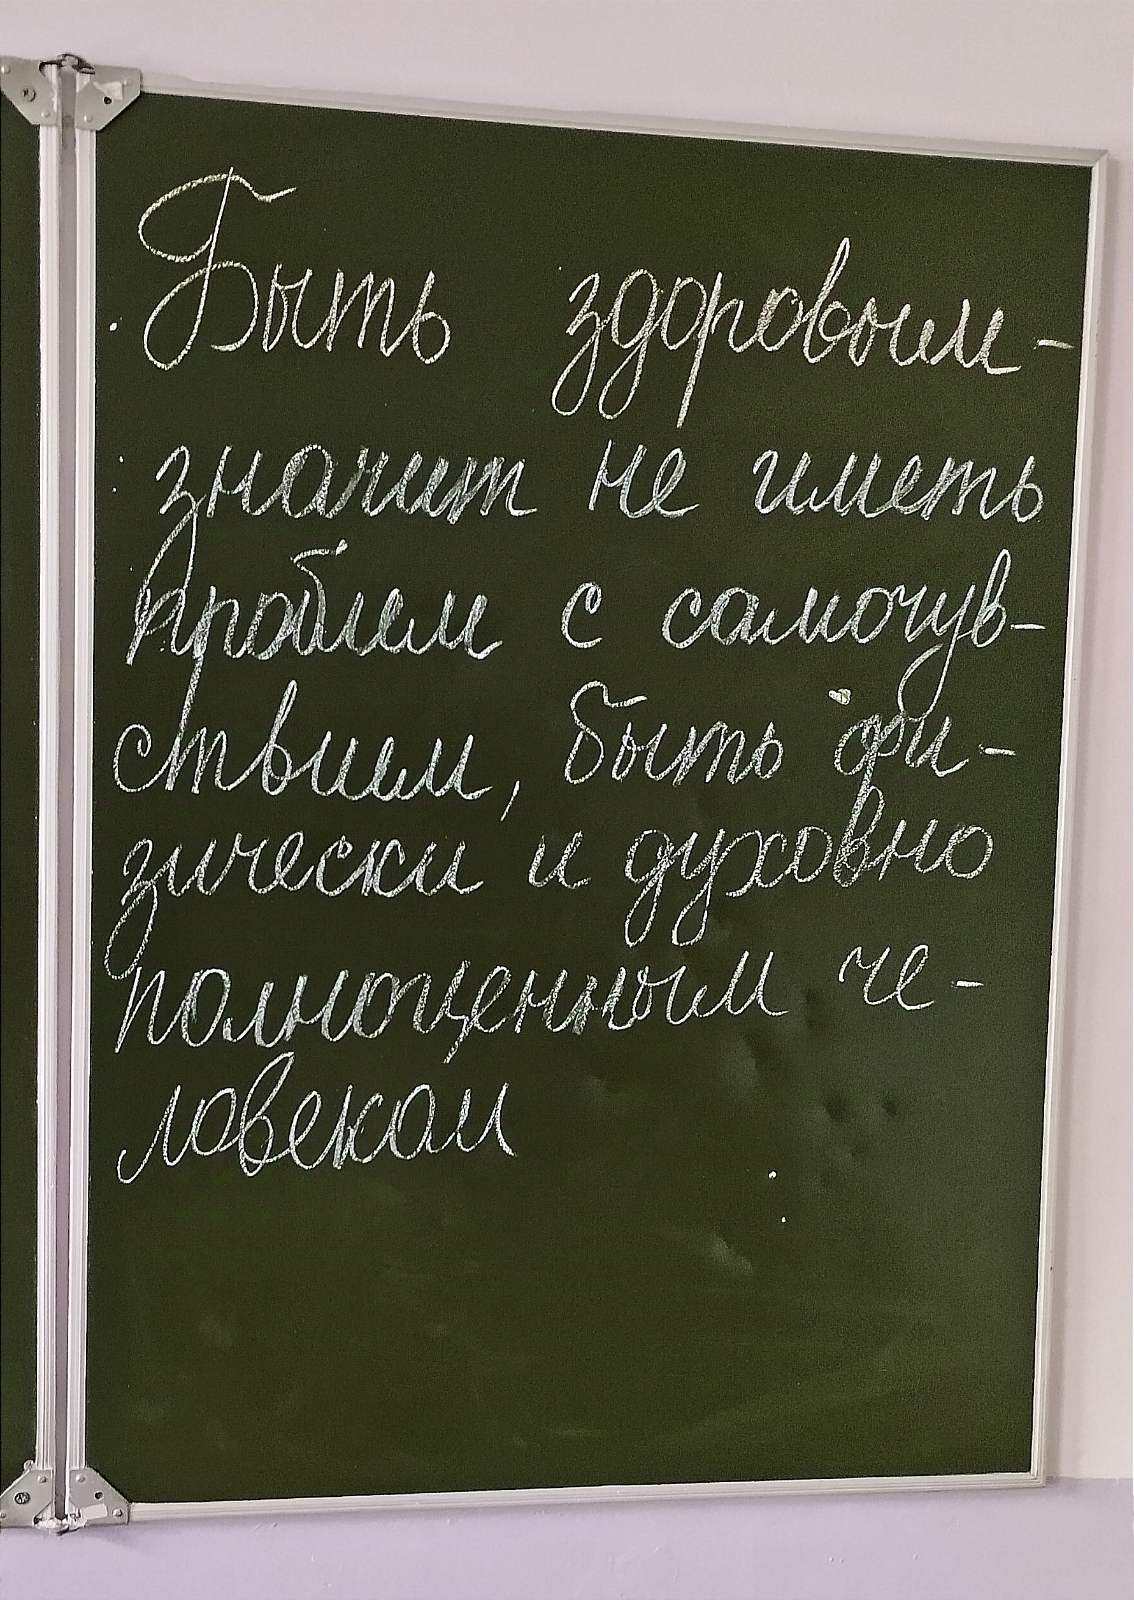 Быть здоровым -
значит не иметь
проблем с самочув-
ствием, быть фи-
зически и духовно
полноценным че-
ловеком